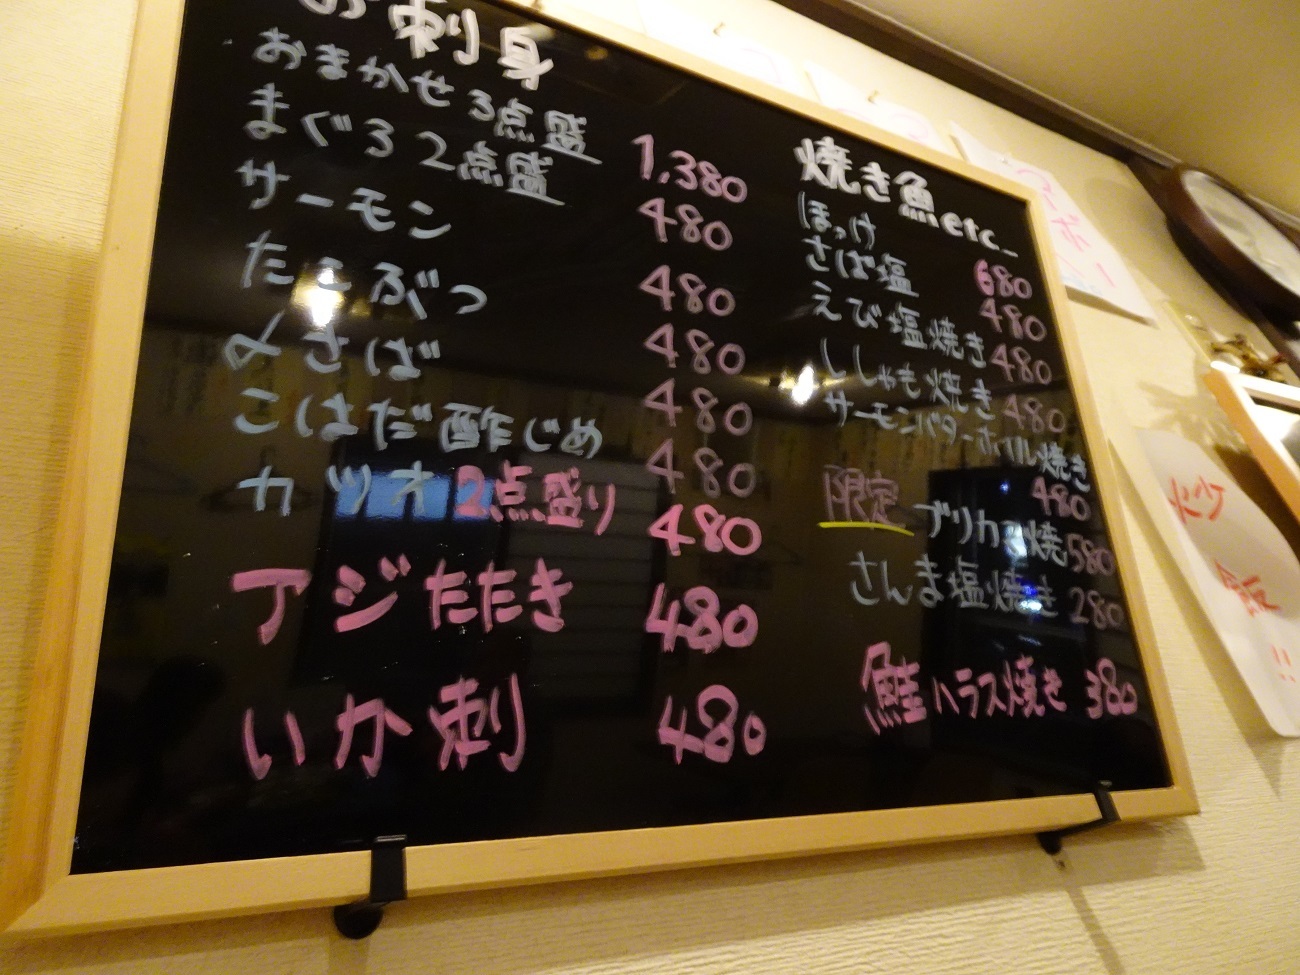 お刺身
おまかせ3点盛 1,380
まぐろ2点盛 480
サーモン 480
たこぶつ 480
〆さば 480
こはだ酢じめ 480
カツオ2点盛り 480
アジたたき 480
いか刺 480
焼き魚etc...
ほっけ 680
さば塩 480
えび塩焼き 480
ししゃも焼き 480
サーモンバターホイル焼き
480
限定 ブリカマ焼 580
さんま塩焼き 280
鮭ハラス焼き 380
炒
飯
!!